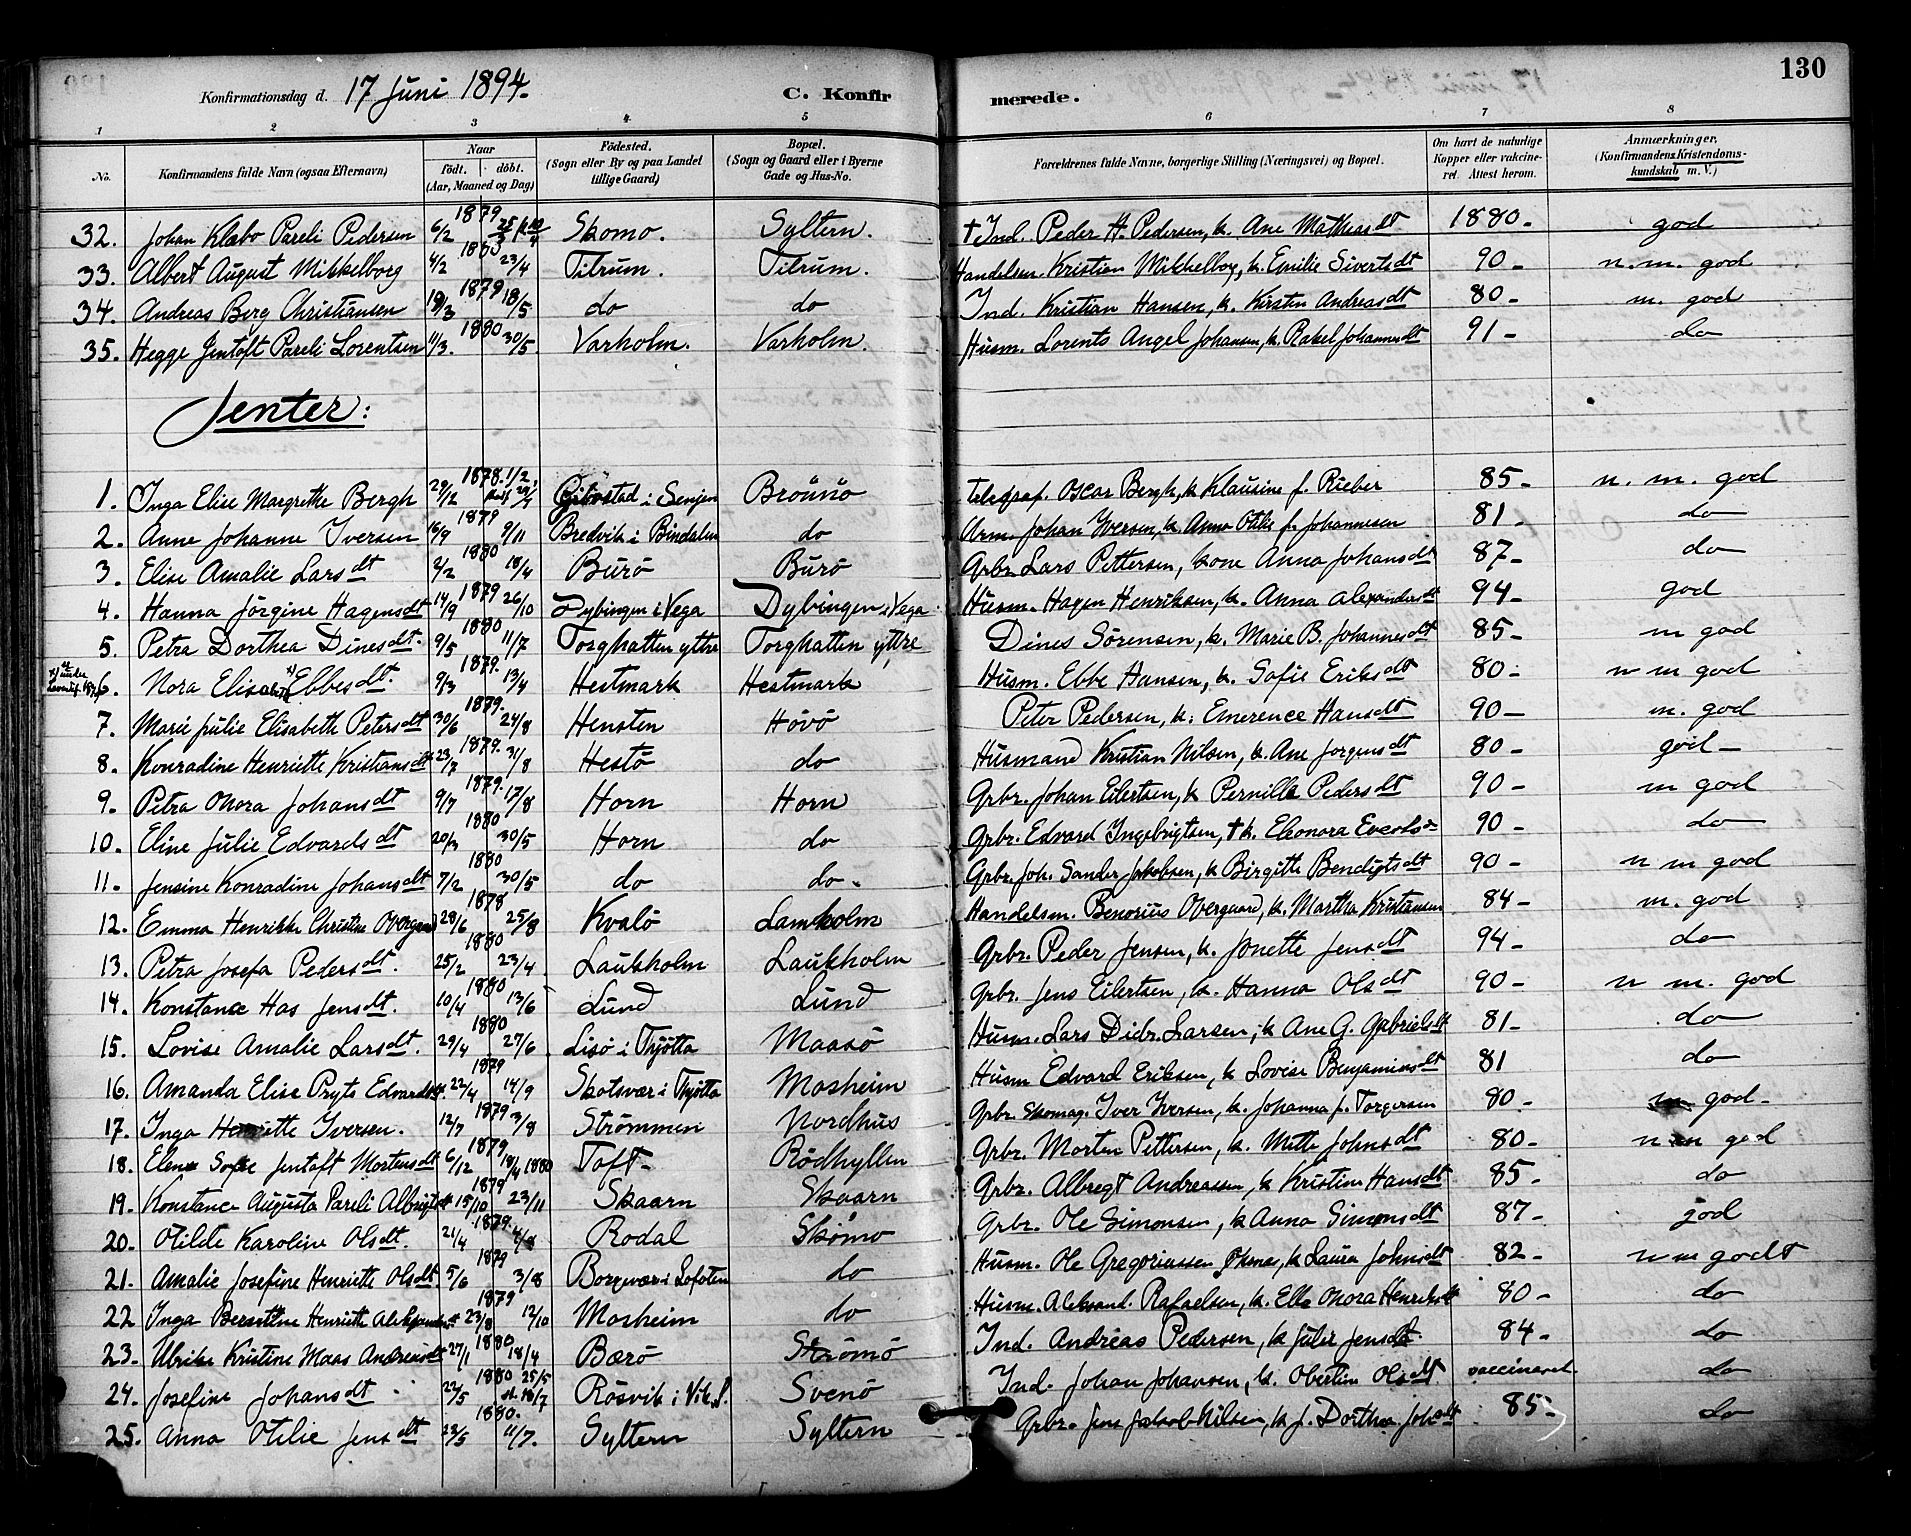 Konfirmationsdag d. 17 Juni 1894. C. Konfirmerede. 130
1 2 3 4 5 6 7 8
No. Konfirmandens fulde Navn (ogsaa Efternavn) Naar födt. döbt. (Aar, Maaned og Dag) Födested. (Sogn eller By og paa Landet tillige Gaard) Bopæl. (Sogn og Gaard eller i Byerne Gade og Hus-No. Forældrenes fulde Navne, borgerlige Stilling (Næringsvei) og Bopæl. Om havt de naturlige Kopper eller vakcineret. Attest herom. Anmærkninger, (Konfirmandens Kristendomskundskab m. V.)
32. Johan Klæbo Pareli Pedersen 6/2 1879 Skomo. Syltern. † Ind. Peder H. Pedersen, k. Ane Mathiasdt 1880- god
33. Albert August Mikkelborg 4/2 1880 23/4 Titrum. Titrum. Handelsm. Kristian Mikkelborg, k. Emilie Sivertsdt 90- n.m. god
34. Andreas Berg Christiansen 19/3 1879 18/5 do do Ind. Kristian Hansen, k. Kirsten Andreasdt 80- m. god
35. Hegge Jentoft Pareli Lorentsen 11/3. 1880 30/5. Varholm. Varholm. Husm. Lorents Angel Johansen, k. Rakel Johannesdt 91- do
Jenter:
1. Inga Elise Margrethe Bergh 29/2 1878. 1/2, Gibostad i Senjen Brönnö Telegraf. Oscar Bergh, k Klausine f. Rieber 85- n. m. god
2. Anne Johanne Iversen 16/9 1879 9/11 Bredvik i Bindalen do Arm. Johan Iversen, k. Anna Otilie f. Johannesen 81- do
3. Elise Amalie Larsdt 2/2 1880 18/4 Burö Burö Grbr. Lars Pettersen, kone Anna Johansdt 87- do
4. Hanna Jörgine Hagensdt 14/9 1879 26/10 Dybingen i Vega Dybingen i Vega. Husm. Hagen Henriksen, k. Anna Alexandersdt 94- god
5. Petra Dorthea Dinesdt. 9/5 1880 11/7 Torghatten yttre Torghatten yttre Dines Sörensen, k. Marie B. Johannesdt 85- m god
6. Nora Elisabeth Ebbesdt. 9/3 1879. 13/4 Hestmark Hestmark Husm. Ebbe Hansen, k. Sofie Eriksdt 80- n m god
7. Marie Julie Elisabeth Petersdt 30/6 1879. 24/8 Hensten Hövö Peter Pedersen, k. Emerence Hansdt 90- m. god
8. Konradine Henriette Kristiansdt 23/7 1879. 31/8 Hestö do Husmand Kristian Nilsen, k. Ane Jorgensdt 80- god-
9. Petra Nora Johansdt 9/7 1879. 17/8 Horn Horn Grbr. Johan Eilertsen, k Pernille Pedersdt 90- m god
10. Eline Julie Edvardsdt 20/3 1880 30/5 Horn do Grbr. Edvard Ingebrigtsen, † k. Eleonora 90- do
11. Jensine Konradine Johansdt 7/2 1880 30/5 do do. Grbr. Joh. Sander Jakobsen, k Birgitte Bendigtsdt 90- n m god
12. Emma Henrikke Christine Overgaard 28/6 1878 25/8 Kvalö Lamholm Handelsm. Benorius Overgaard, k. Martha Kristiansen 84- m. god
13. Petra Josefa Pedersdt. 25/2 1880 23/4. Laukholm Laukholm Grbr. Peder Jensen, k. Jonette Jensdt 94- do
14. Konstance Has Jensdt. 10/4 1880 13/6 Lund Lund Grbr. Jens Eilertsen, k. Hanna Olsdt 90- n m. god
15. Lovise Amalie Larsdt. 29/4 1880 27/6. Lisö i Tjötta Maasö Husm. Lars Didr. Larsen, k Ane G. Gabrielsdt 81- do
16. Amanda Elise Pryts Edvardsdt. 22/4 1879 14/9 Skotsvær i Tjötta Mosheim Husm Edvard Eriksen, k Lovise Benjaminsdt 81 do
17. Inga Henriette Iversen. 12/7 1879 3/8 Strömmen Nordhus Grbr. Skomag. Iver Iversen, k. Johanna f. Torgersen 80- m god-
18. Elene Sofie Jentoft Mortensdt 6/12 1879 18/4 1880 Toft- Rödhyllen Grbr. Morten Pettersen, k. Mette Johnsdt 80- n m god
19. Konstance Augusta Pareli Albrigtsdt 15/10 1879 23/11 Skaarn Skaarn Grbr. Albregt Andreassen, k Kristine Hansdt 85- do
20. Otilde Karoline Olsdt. 21/4 1879. 4/8 Rodal Skomo Grbr. Ole Simonsen, k Anna Simonsdt 87- god
21. Amalie Josefine Henriette Olsdt. 5/6 1879 3/8 Borgvær i Lofoten do Husm. Ole Gregoriussen k Laura Johnsdt 82- n m godt
22 Inga Bersvine Henriette Aleksandersdt 23/8 1879 12/10 Mosheim do Husm. Aleksand. Rafaelsen, k. Ella Nora Henriksdt 80- do
23. Ulrikke Kristine Maas Andreasdt 27/1 1880 18/4 Bærö Strömö Ind. Andreas Pedersen, k Jensdt. 84- do
24. Josefine Johansdt 22/5 1880 25/5 st. 18/7 Rösvik i Vik. S. Svenö Ind. Johan Johansen, k. Obertine Olsdt vaccineret do
25. Anna Otilie Jensdt 22/5 1880. 11/7. Syltern Syltern Grbr. Jens Jakob Nilsen, k. f. Dorthea Johsdt 85- do